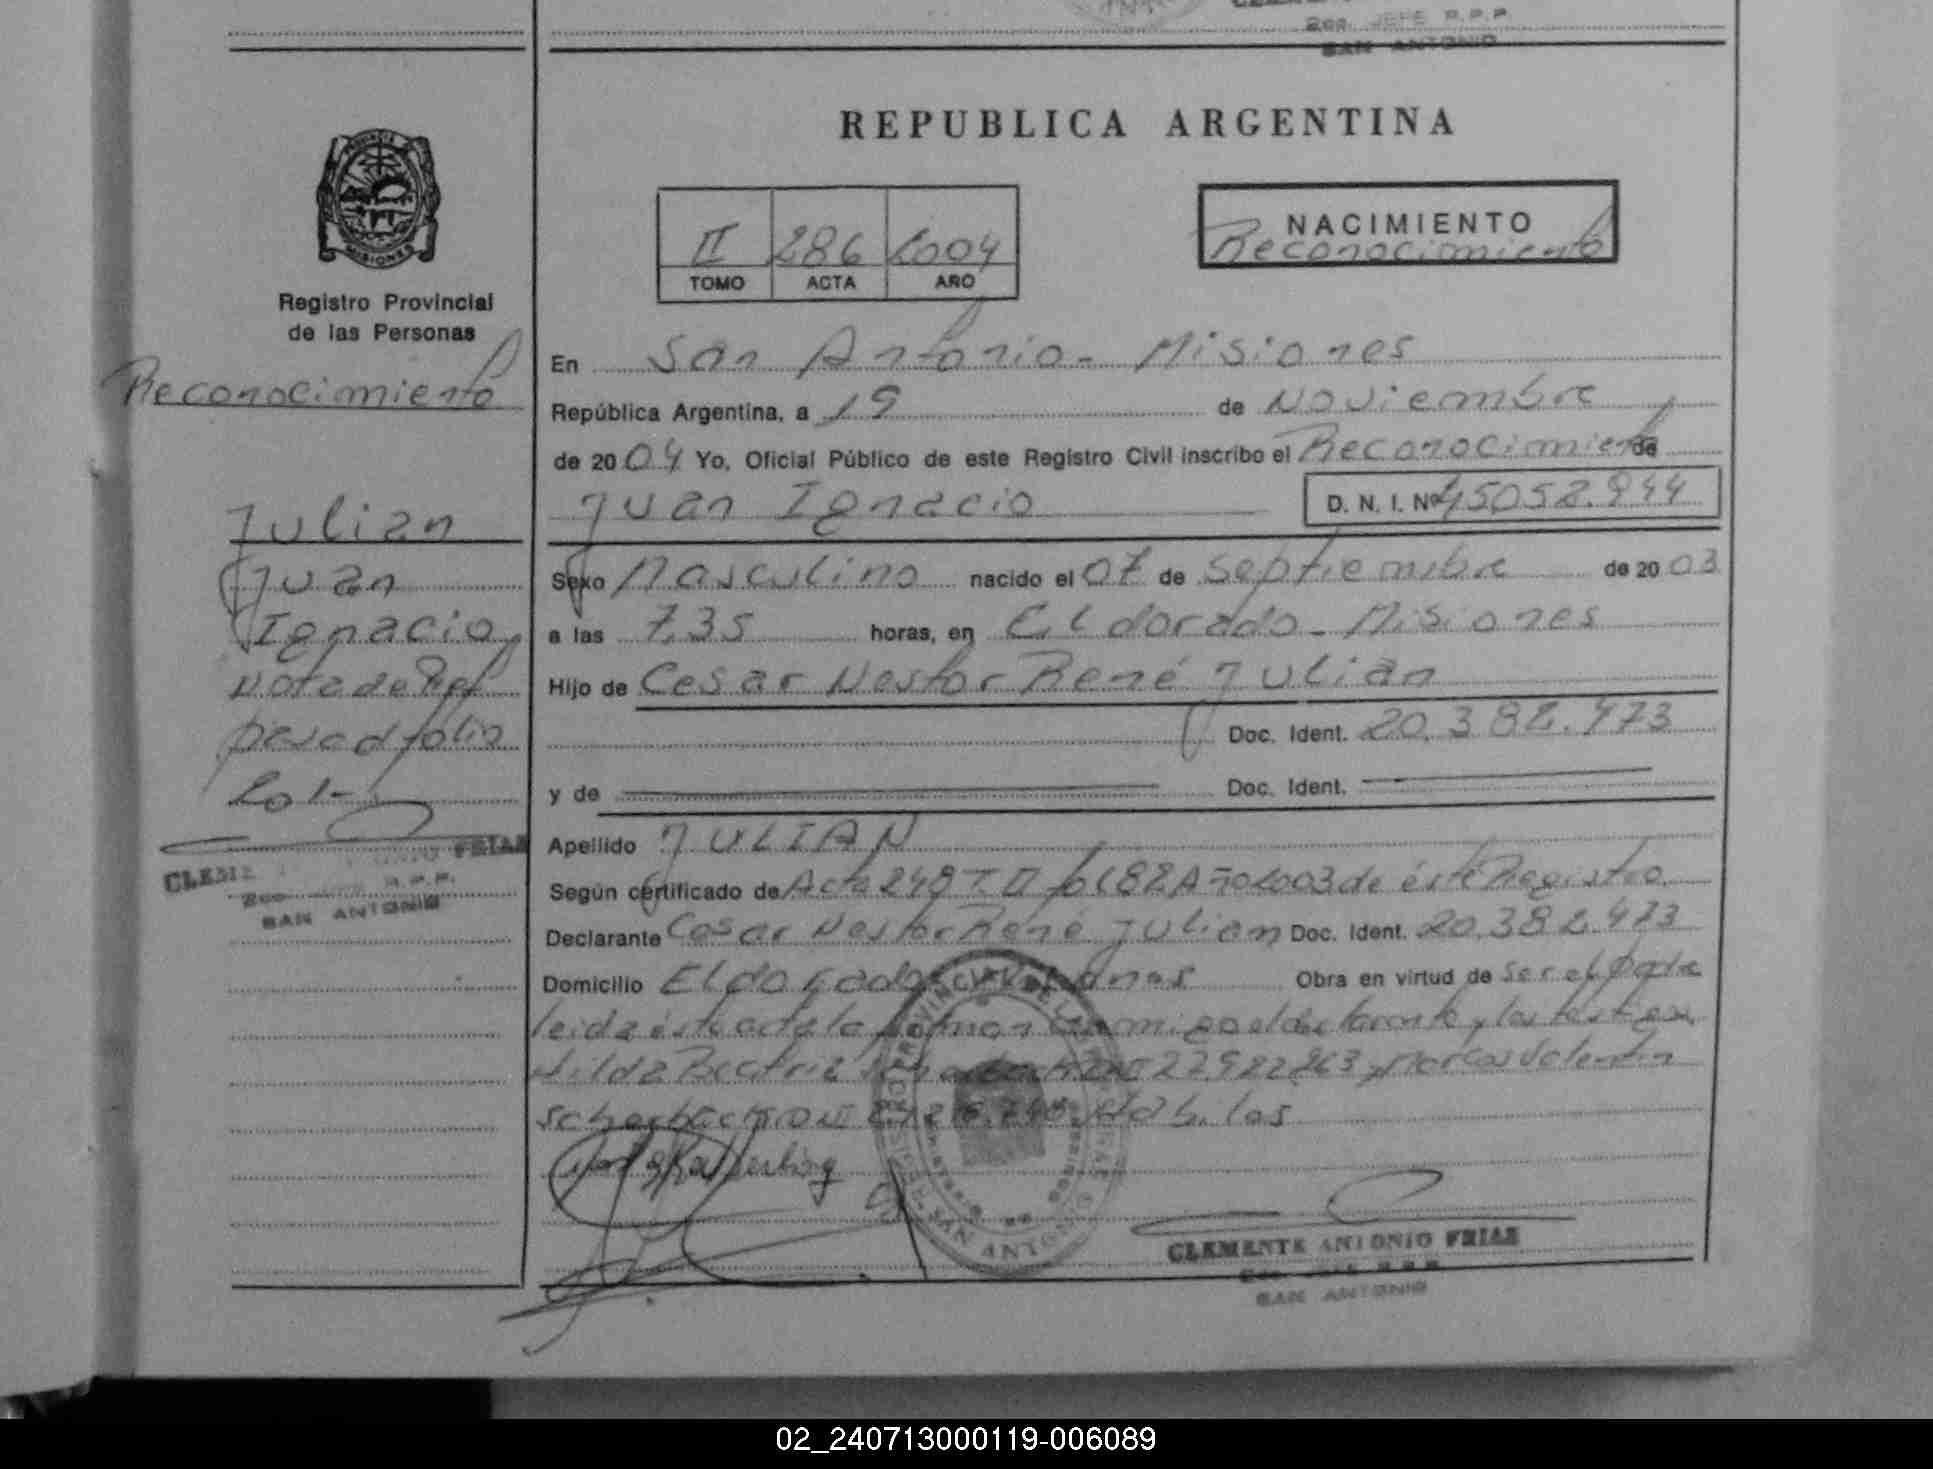 Sec. JEFE R.P.P.
SAN ANTONIO
REPUBLICA ARGENTINA
PROVINCIA
MISIONES
Registro Provincial
de las Personas
II 286 2004
TOMO ACTA AÑO
NACIMIENTO
Reconocimiento
Reconocimiento
Julian
Juan
Ignacio
Nota de Ref
folio
201-
FRIAS
SAN ANTONIO
En San Antonio - Misiones
República Argentina, a 19 de Noviembre
de 2004 Yo, Oficial Público de este Registro Civil inscribo el Reconocimiento de
Juan Ignacio D. N. I. Nº 45058.944
Sexo Masculino nacido el 07 de Septiembre de 2003
a las 7,35 horas, en Eldorado - Misiones
Hijo de Cesar Nestor René Julian
Doc. Ident. 20.382.473
y de Doc. Ident.
Apellido JULIAN
Según certificado de Acta 248 T II Año 2003 de éste Registro
Declarante Cesar Nestor René Julian Doc. Ident. 20.382.473
Domicilio Eldorado Obra en virtud de ser el Padre
leida éste acta la firman conmigo el declarante y los testigos
Beatriz 22.922.263 y Marcos Valentin
habiles
SAN ANTONIO
CLEMENTE ANTONIO FRIAS
SAN ANTONIO
02_240713000119-006089